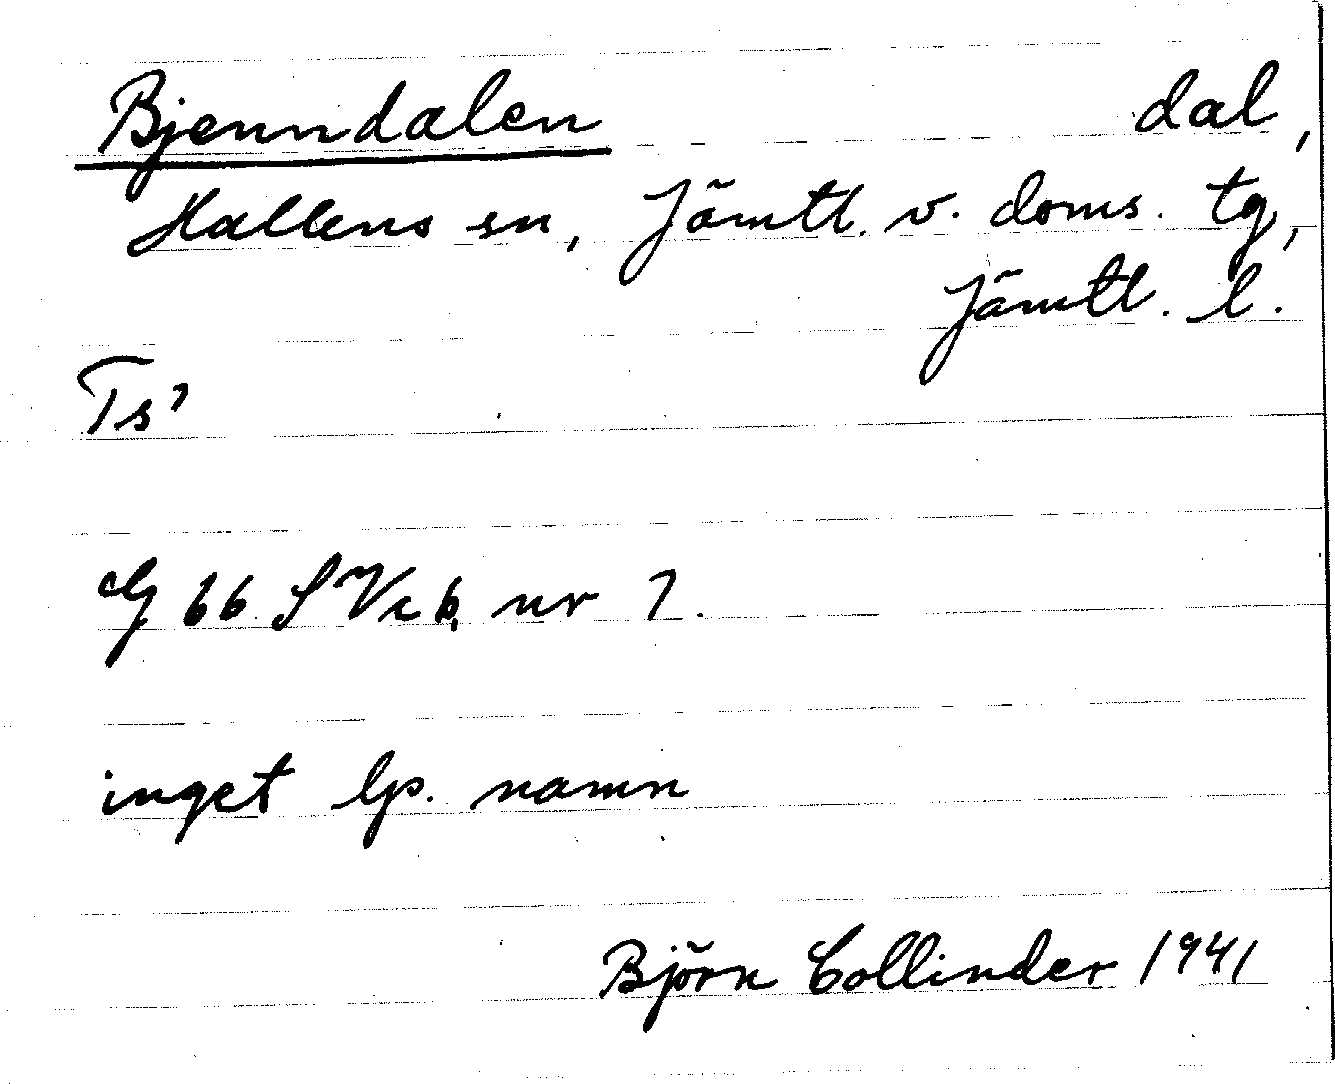 Bjenndalen dal,
Hallens sn, Jämtl. v. doms. tg,
Jämtl. l.
Ts?
G 66 S V c b, nr 7.
inget lp. namn
Björn Collinder 1941